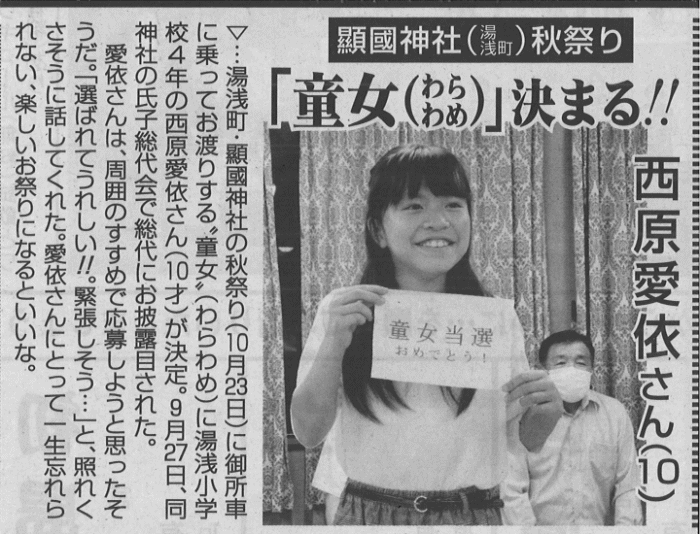 顯國神社(湯浅町)秋祭り
「童女(わらわめ)」決まる!!
西原愛依さん(10)
童女当選
おめでとう!
▽…湯浅町・顯國神社の秋祭り(10月23日)に御所車
に乗ってお渡りする〝童女〟(わらわめ)に湯浅小学
校4年の西原愛依さん(10才)が決定。9月27日、同
神社の氏子総代会で総代にお披露目された。
愛依さんは、周囲のすすめで応募しようと思ったそ
うだ。「選ばれてうれしい!!。緊張しそう…」と、照れく
さそうに話してくれた。愛依さんにとって一生忘れら
れない、楽しいお祭りになるといいな。